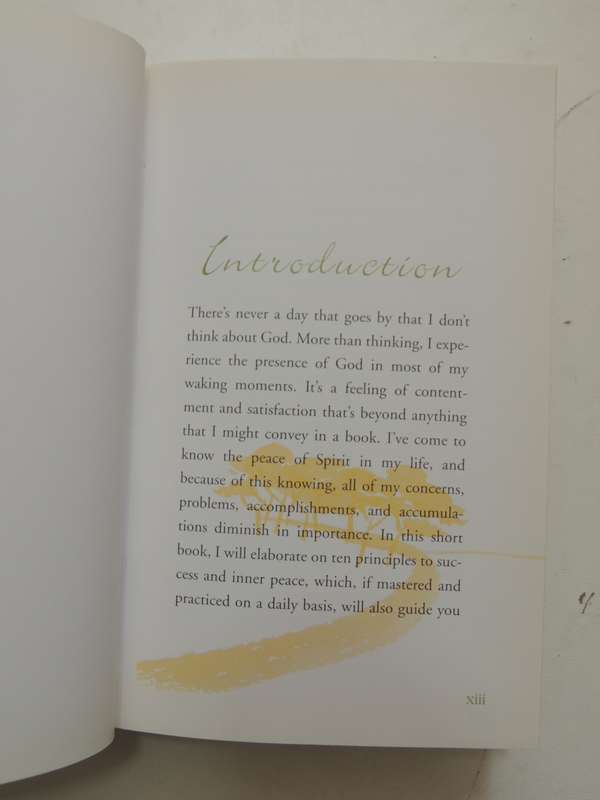 Introduction
There's never a day that goes by that I don't
think about God. More than thinking, I expe-
rience the presence of God in most of my
waking moments. It's a feeling of content-
ment and satisfaction that's beyond anything
that I might convey in a book. I've come to
know the peace of Spirit in my life, and
because of this knowing, all of my concerns,
problems, accomplishments, and accumula-
tions diminish in importance. In this short
book, I will elaborate on ten principles to suc-
cess and inner peace, which, if mastered and
practiced on a daily basis, will also guide you
xiii